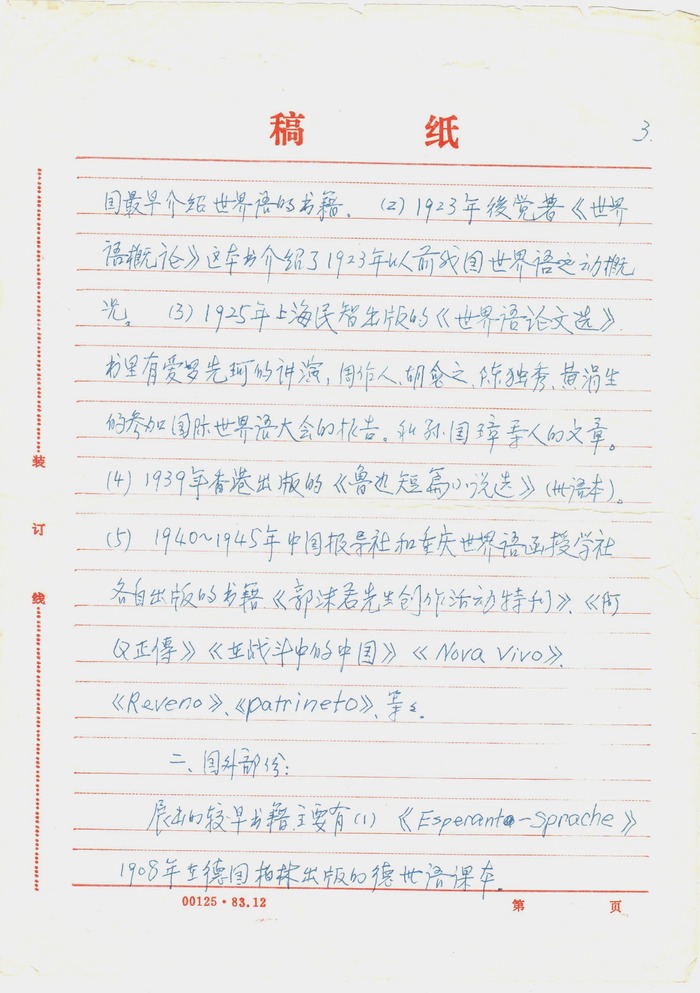 稿 纸
3.
国最早介绍世界语的书籍。 (2) 1923年後觉著《世界
语概论》这本书介绍了1923年以前我国世界语运动概
况。 (3) 1925年上海民智出版的《世界语论文选》.
书里有爱罗先珂的讲演,周作人、胡愈之、陈独秀、黄涓生
的参加国际世界语大会的报告。和孙国璋等人的文章。
(4) 1939年香港出版的《鲁迅短篇小说选》(世语本)。
(5) 1940~1945年中国报导社和重庆世界语函授学社
各自出版的书籍《郭沫若先生创作活动特刊》、《阿
Q正傳》《在战斗中的中国》《Nova Vivo》、
《Reveno》、《patrineto》、等等.
二、国外部份:
展出的较早书籍主要有(1)《Esperanta-Sprache》
1908年在德国柏林出版的德世语课本.
装
订
线
00125·83.12
第 页